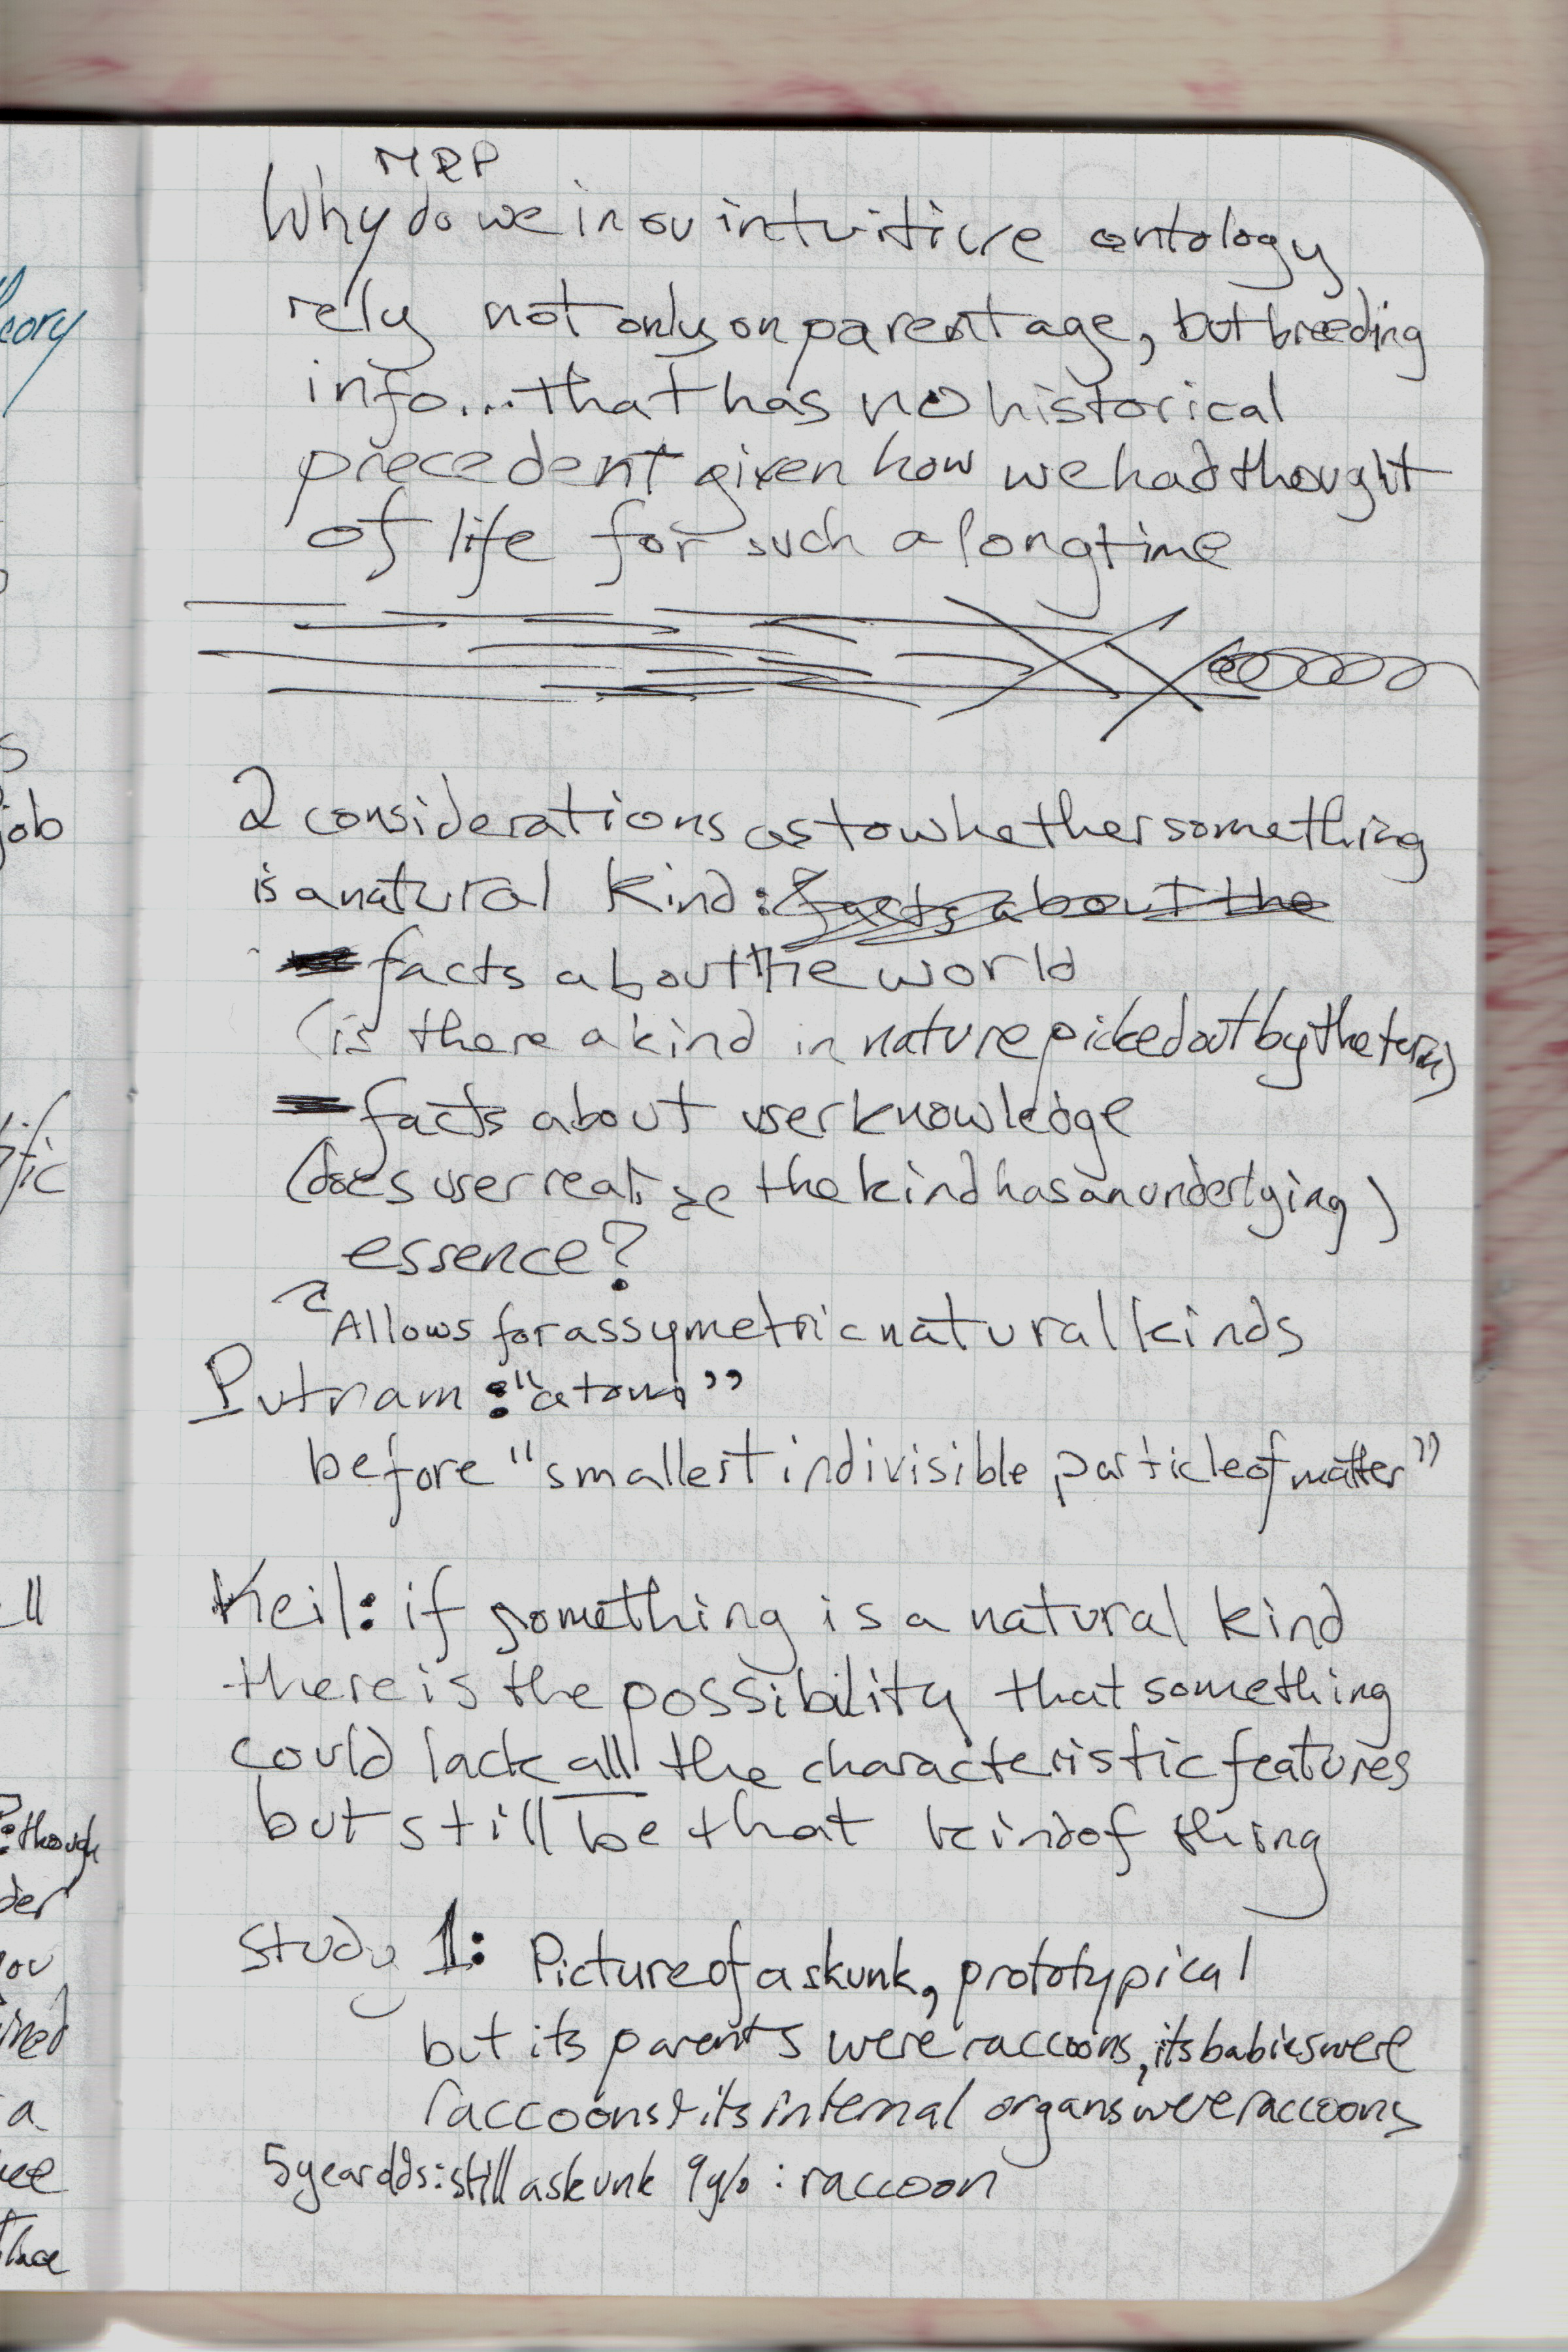 MRP
Why do we in ou intuitive ontology
rely not only on parentage, but breeding
info... that has no historical
precedent given how we had thought
of life for such a long time
2 considerations as to whether something
is a natural kind: facts about the
facts about the world
(is there a kind in nature picked out by the term)
facts about user knowledge
(does user realize the kind has an underlying)
essence?
Allows for assymetric natural kinds
Putnam: "atom"
before "smallest indivisible particle of matter"
Keil: if something is a natural kind
there is the possibility that something
could lack all the characteristic features
but still be that kind of thing
Study 1: Picture of a skunk, prototypical
but its parents were raccoons, its babies were
raccoons & its internal organs were raccoons
5 year olds: still a skunk 9 y/o: raccoon
eory
s
job
fic
ll
: though
der
ou
ined
a
lace